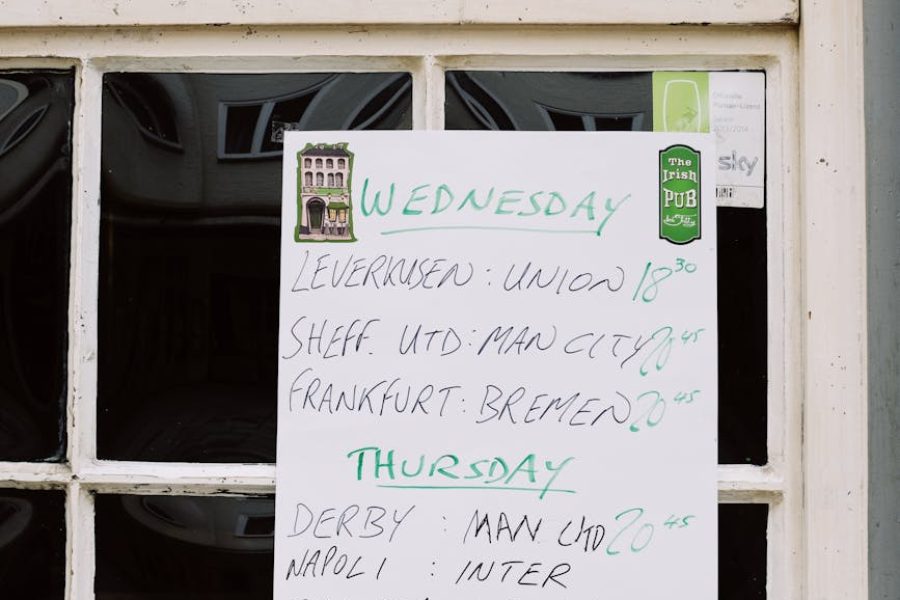 sky
2013/2014
The
Irish
PUB
WEDNESDAY
LEVERKUSEN : UNION 18 30
SHEFF. UTD : MAN CITY 20 45
FRANKFURT : BREMEN 20 45
THURSDAY
DERBY : MAN UTD 20 45
NAPOLI : INTER